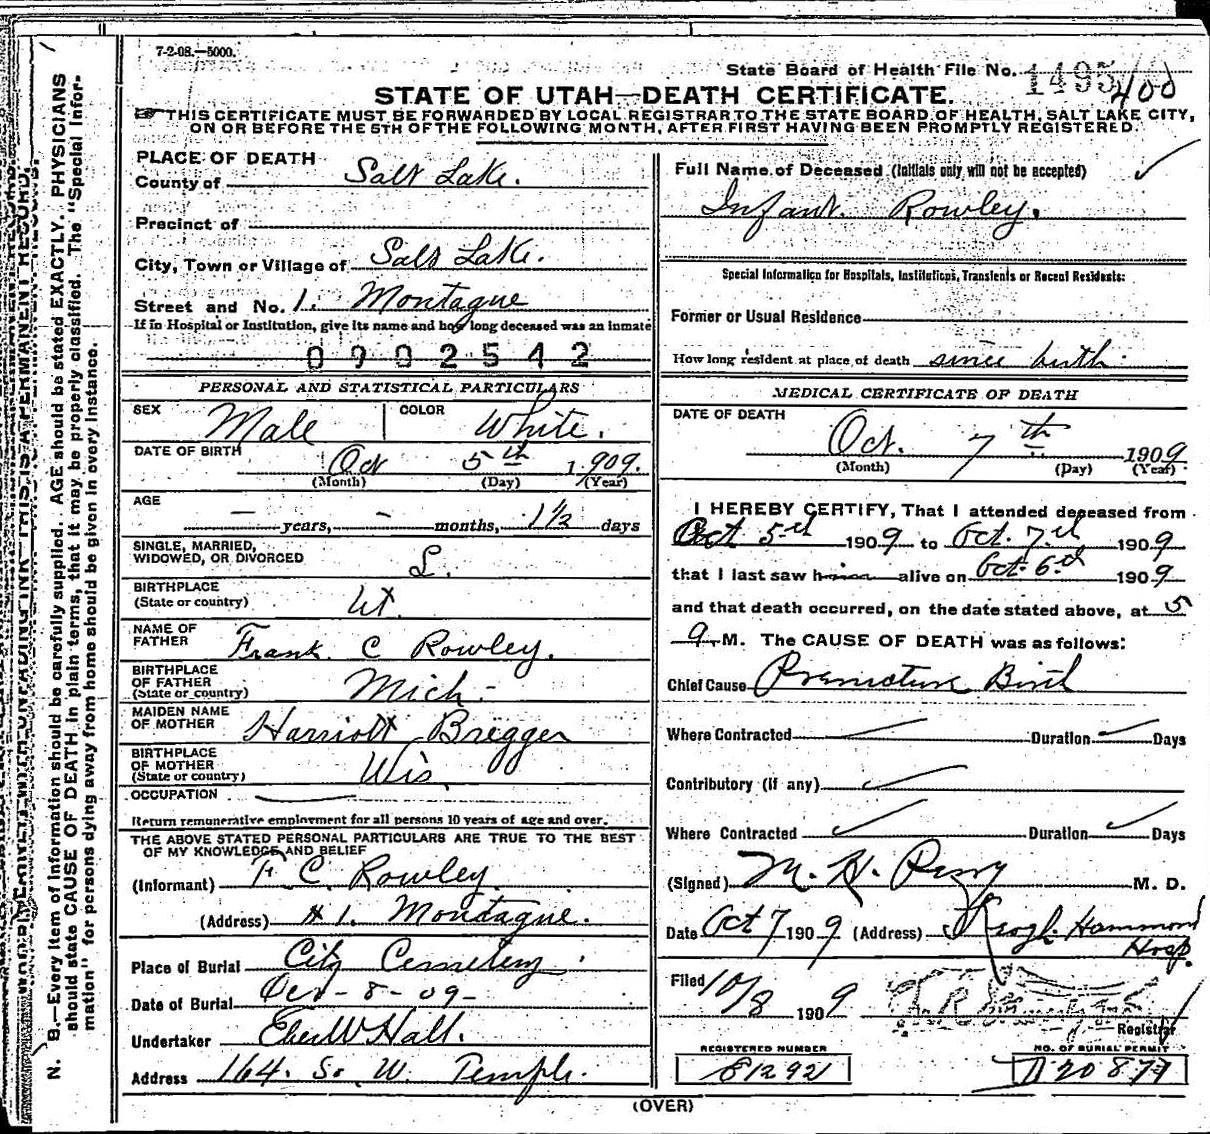 7-2-08.—5000.
State Board of Health File No. 1495 400
STATE OF UTAH—DEATH CERTIFICATE.
THIS CERTIFICATE MUST BE FORWARDED BY LOCAL REGISTRAR TO THE STATE BOARD OF HEALTH, SALT LAKE CITY,
ON OR BEFORE THE 5TH OF THE FOLLOWING MONTH, AFTER FIRST HAVING BEEN PROMPTLY REGISTERED.
PLACE OF DEATH
County of Salt Lake.
Precinct of
City, Town or Village of Salt Lake.
Street and No. 1. Montague
If in Hospital or Institution, give its name and how long deceased was an inmate
0902542
PERSONAL AND STATISTICAL PARTICULARS
SEX Male COLOR White.
DATE OF BIRTH Oct 5th 1909.
(Month) (Day) (Year)
AGE
— years, - months, 1 1/2 days
SINGLE, MARRIED,
WIDOWED, OR DIVORCED S.
BIRTHPLACE
(State or country) Ut.
NAME OF
FATHER Frank C Rowley.
BIRTHPLACE
OF FATHER
(State or country) Mich.
MAIDEN NAME
OF MOTHER Harriott Bregger
BIRTHPLACE
OF MOTHER
(State or country) Wis
OCCUPATION
Return remunerative employment for all persons 10 years of age and over.
THE ABOVE STATED PERSONAL PARTICULARS ARE TRUE TO THE BEST
OF MY KNOWLEDGE AND BELIEF
(Informant) F. C. Rowley.
(Address) # 1. Montague.
Place of Burial City Cemetery.
Date of Burial Oct-8-09-
Undertaker Eber W Hall.
Address 164. So. W. Temple.
Full Name of Deceased (Initials only will not be accepted)
Infant. Rowley.
Special Information for Hospitals, Institutions, Transients or Recent Residents:
Former or Usual Residence
How long resident at place of death since birth.
MEDICAL CERTIFICATE OF DEATH
DATE OF DEATH
Oct. 7th 1909
(Month) (Day) (Year)
I HEREBY CERTIFY, That I attended deceased from
Oct 5th 1909 to Oct. 7th 1909
that I last saw him alive on Oct. 6th 1909
and that death occurred, on the date stated above, at 5
a M. The CAUSE OF DEATH was as follows:
Chief Cause Premature Birth
Where Contracted Duration Days
Contributory (if any)
Where Contracted Duration Days
(Signed) M. H. M. D.
Date Oct 7 1909 (Address) Keogh. Hammond
Hosp.
Filed 10/8 1909
Registrar
REGISTERED NUMBER
81292
NO. OF BURIAL PERMIT
D 20877
(OVER)
N. B.—Every item of information should be carefully supplied. AGE should be stated EXACTLY. PHYSICIANS
should state CAUSE OF DEATH in plain terms, that it may be properly classified. The "Special Infor-
mation" for persons dying away from home should be given in every instance.